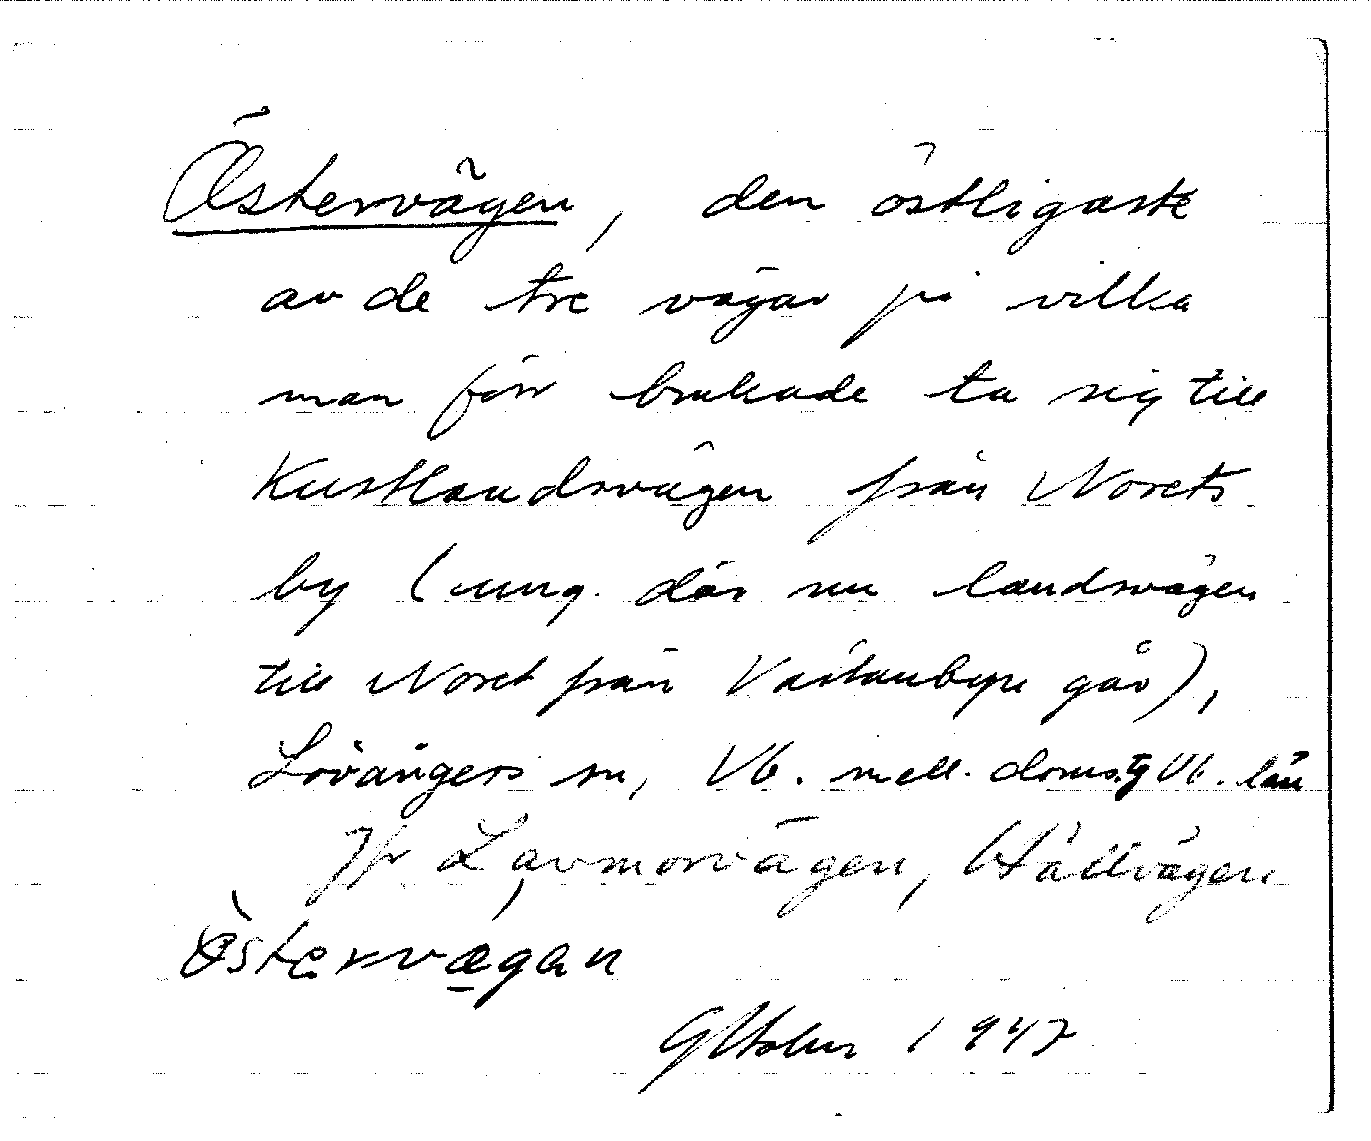 Östervägen, den östligaste
av de tre vägar på vilka
man förr brukade ta sig till
Kustlandsvägen från Norets
by (ung. där nu landsvägen
till Noret från Västanbyn går),
Lövångers sn, Vb. mell. doms. Vb. län
Jfr Lavmorvägen, Hållvägen
Östervægan
GHolm 1947